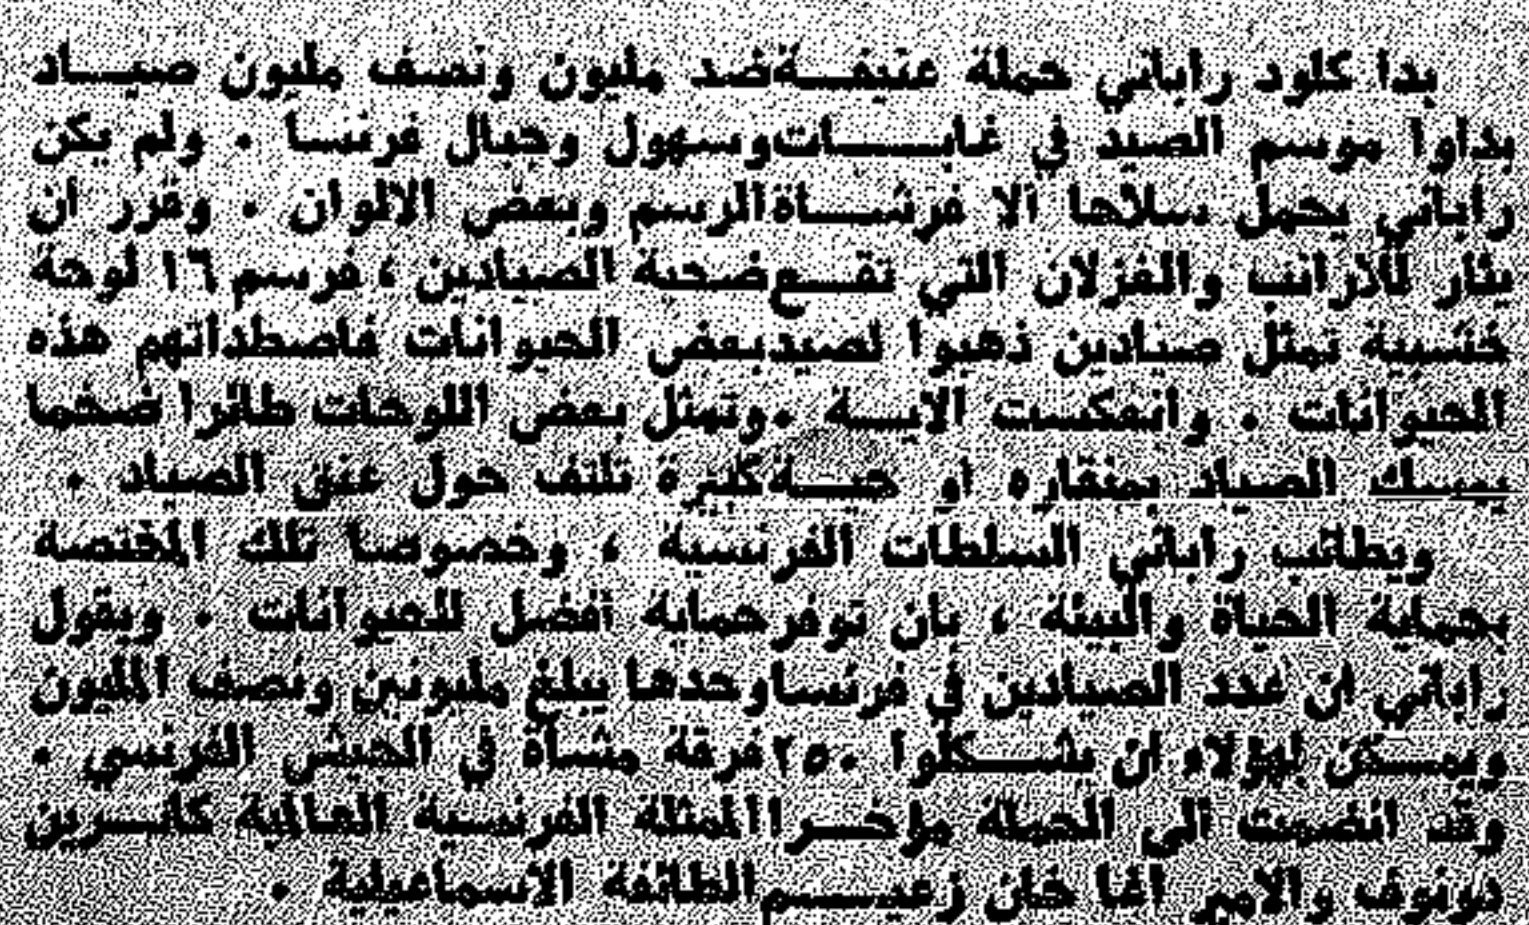 بدا كلود راباني حملة عنيفة ضد مليون ونصف مليون صياد
بداوا موسم الصيد في غابات وسهول وجبال فرنسا . ولم يكن
راباني يحمل سلاحا الا فرشاة الرسم وبعض الالوان . وقرر ان
يثار للارانب والغزلان التي تقع ضحية الصيادين ، فرسم ١٦ لوحة
خشبية تمثل صيادين ذهبوا لصيد بعض الحيوانات فاصطداتهم هذه
الحيوانات . وانعكست الاية . وتمثل بعض اللوحات طائرا ضخما
يمسك الصياد بمنقاره او حية كبيرة تلتف حول عنق الصياد .
ويطالب راباني السلطات الفرنسية ، وخصوصا تلك المختصة
بحماية الحياة والبيئة ، بان توفر حماية افضل للحيوانات . ويقول
راباني ان عدد الصيادين في فرنسا وحدها يبلغ مليونين ونصف المليون
ويمكن لهؤلاء ان يشكلوا ٢٥٠ فرقة مشاة في الجيش الفرنسي .
وقد انضمت الى الحملة مؤخرا الممثلة الفرنسية العالمية كاترين
دونوف والامير اغا خان زعيم الطائفة الاسماعيلية .